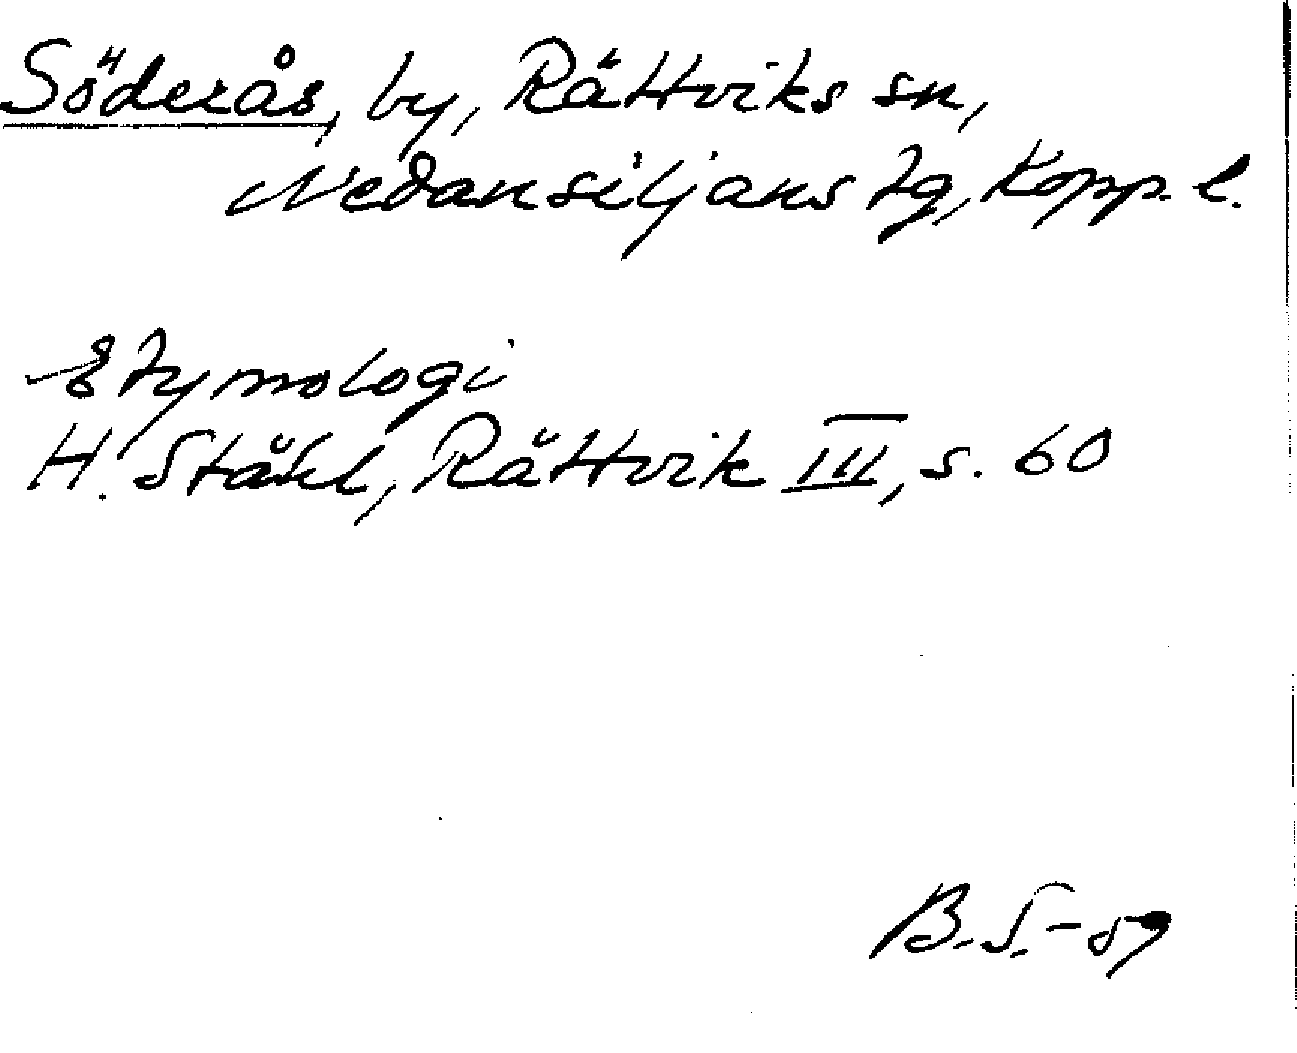 Söderås, by, Rättviks sn,
Nedansiljans tg, Kopp. l.
Etymologi
H. Ståhl, Rättvik III, s. 60
B. S. -89